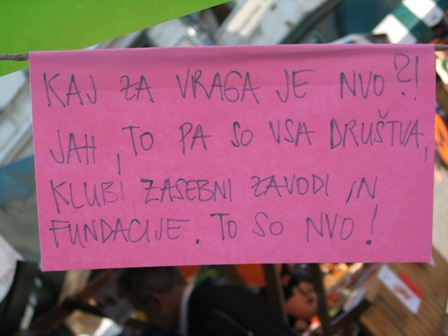 KAJ ZA VRAGA JE NVO?!
JAH, TO PA SO VSA DRUŠTVA,
KLUBI ZASEBNI ZAVODI IN
FUNDACIJE. TO SO NVO!